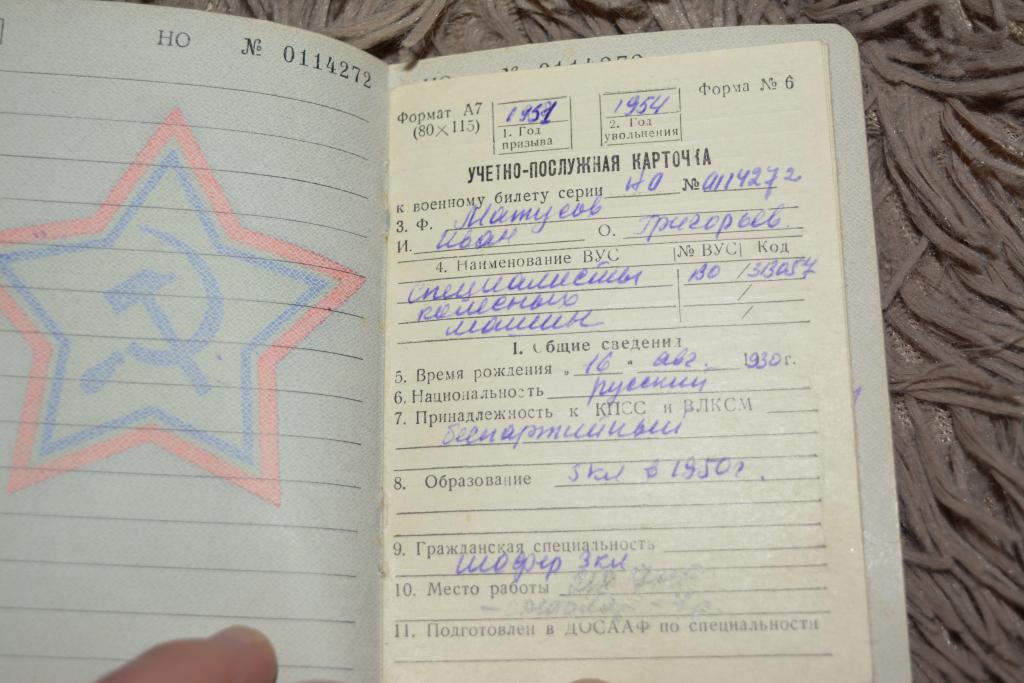 НО № 0114272
НО № 0114272
Формат А7
(80×115)
1951
1. Год
призыва
1954
2. Год
увольнения
Форма № 6
УЧЕТНО-ПОСЛУЖНАЯ КАРТОЧКА
к военному билету серии НО № 0114272
3. Ф. Матусов
И. Иван О. Григорьев.
4. Наименование ВУС № ВУС Код
специалисты 313057
колесных
машин
I. Общие сведения
5. Время рождения „ 16 " авг. 1930 г.
6. Национальность русский
7. Принадлежность к КПСС и ВЛКСМ
беспартийный
8. Образование 5 кл в 1950 г.
9. Гражданская специальность
шофер 3 кл
10. Место работы
11. Подготовлен в ДОСААФ по специальности